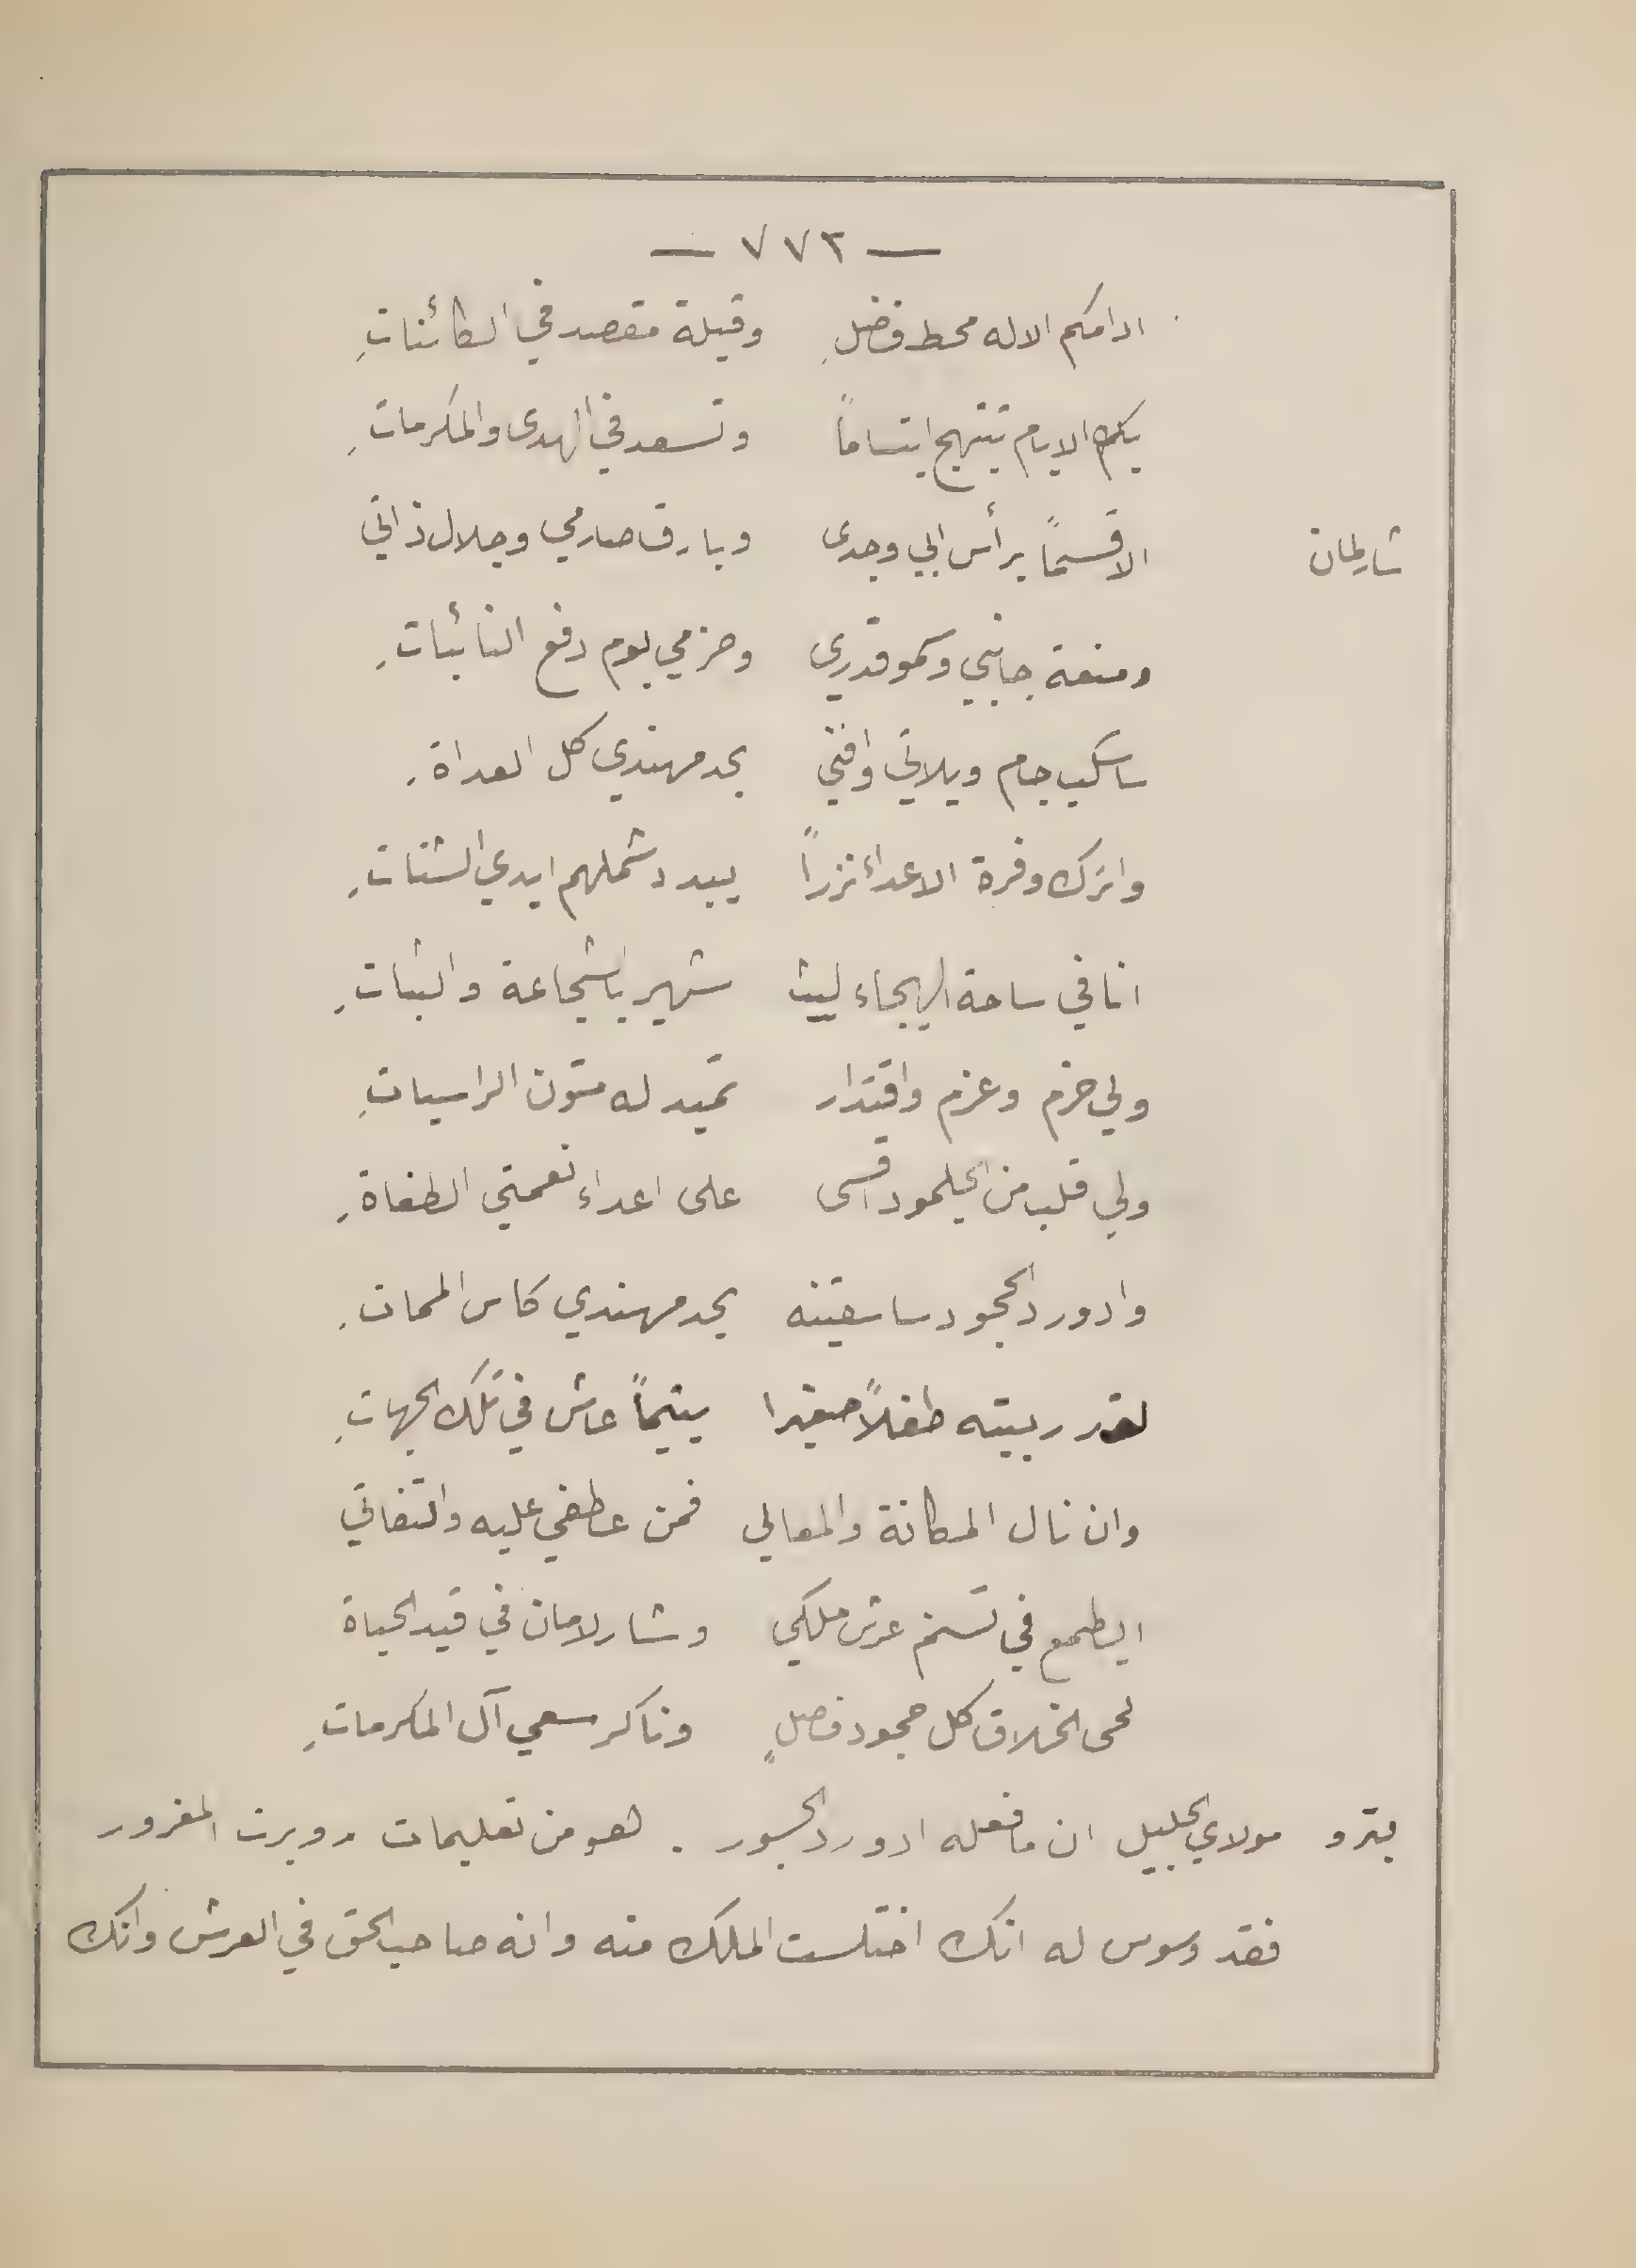 — ٧٧٢ —
ادامكم الاله محط فضلِ وقبلة مقصد في الكائناتِ
بكم الايام تبتهج ابتساماً وتسعد في الهدى والمكرماتِ
شارلمان الا قسماً برأس ابي وجدى وبارق صارمي وجلال ذاتي
ومنعة جانبي وسمو قدري وحزمي يوم دفع النائباتِ
ساسكب جام ويلاتي وافني بحد مهندي كل العداةِ
واترك وفرة الاعداء نزراً يبدد شملهم ايدي الشتاتِ
انا في ساحة الهيجاء ليث شهير بالشجاعة والثباتِ
ولي حزم وعزم واقتدار تميد له متون الراسياتِ
ولي قلب من الجلمود اقسى على اعداء نعمتي الطغاةِ
وادورد الجحود ساسقينه بحد مهندي كاس المماتِ
لقد ربيته طفلاً صغيرا يتيماً عاش في تلك الجهاتِ
وان نال المكانة والمعالي فمن عطفي عليه والتفاتي
ايطمع في تسنم عرش ملكي وشارلامان في قيد الحياة
لحى الخلاق كل جحود فضلٍ وناكر سعي آل المكرماتِ
بترو مولاي الجليل ان ما فعله ادورد الجسور . هو من تعليمات روبرت المغرور
فقد وسوس له انك اختلست الملك منه وانه صاحب الحق في العرش وانك